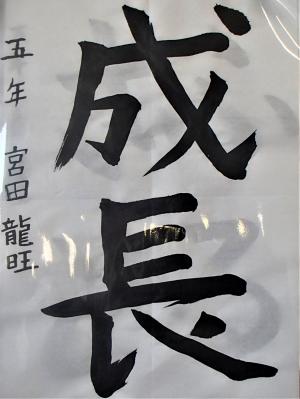 成長
五年 宮田龍旺